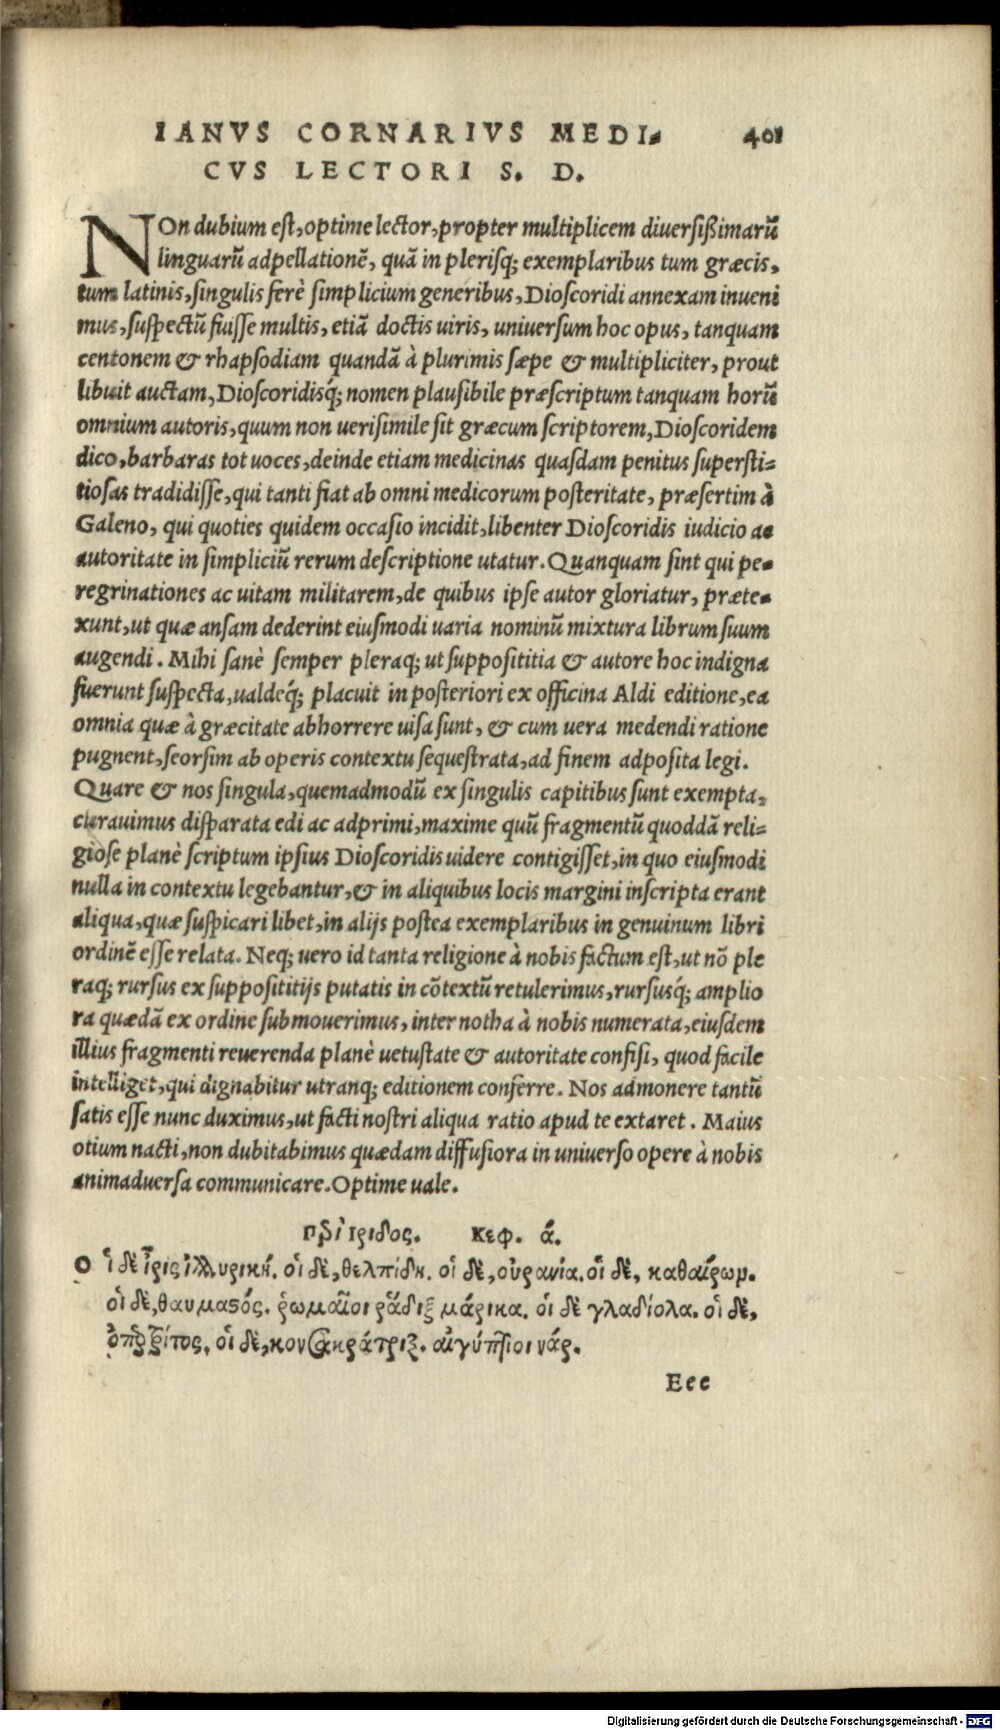 IANVS CORNARIVS MEDI- 401
CVS LECTORI S. D.
NOn dubium est, optime lector, propter multiplicem diuersißimarũ
linguarũ adpellationẽ, quã in plerisq; exemplaribus tum græcis,
tum latinis, singulis ferè simplicium generibus, Dioscoridi annexam inueni
mus, suspectũ fuisse multis, etiã doctis uiris, uniuersum hoc opus, tanquam
centonem & rhapsodiam quandã à plurimis sæpe & multipliciter, prout
libuit auctam, Dioscoridisq́; nomen plausibile præscriptum tanquam horũ
omnium autoris, quum non uerisimile sit græcum scriptorem, Dioscoridem
dico, barbaras tot uoces, deinde etiam medicinas quasdam penitus supersti=
tiosas tradidisse, qui tanti fiat ab omni medicorum posteritate, præsertim à
Galeno, qui quoties quidem occasio incidit, libenter Dioscoridis iudicio ac
autoritate in simpliciũ rerum descriptione utatur. Quanquam sint qui pe-
regrinationes ac uitam militarem, de quibus ipse autor gloriatur, præte-
xunt, ut quæ ansam dederint eiusmodi uaria nominũ mixtura librum suum
augendi. Mihi sanè semper pleraq; ut supposititia & autore hoc indigna
fuerunt suspecta, ualdeq́; placuit in posteriori ex officina Aldi editione, ea
omnia quæ à græcitate abhorrere uisa sunt, & cum uera medendi ratione
pugnent, seorsim ab operis contextu sequestrata, ad finem adposita legi.
Quare & nos singula, quemadmodũ ex singulis capitibus sunt exempta,
curauimus disparata edi ac adprimi, maxime quũ fragmentũ quoddã reli=
giose planè scriptum ipsius Dioscoridis uidere contigisset, in quo eiusmodi
nulla in contextu legebantur, & in aliquibus locis margini inscripta erant
aliqua, quæ suspicari libet, in alijs postea exemplaribus in genuinum libri
ordinẽ esse relata. Neq; uero id tanta religione à nobis factum est, ut nõ ple
raq; rursus ex supposititijs putatis in cõtextũ retulerimus, rursusq́; amplio
ra quædã ex ordine submouerimus, inter notha à nobis numerata, eiusdem
illius fragmenti reuerenda planè uetustate & autoritate confisi, quod facile
intelliget, qui dignabitur utranq; editionem conferre. Nos admonere tantũ
satis esse nunc duximus, ut facti nostri aliqua ratio apud te extaret. Maius
otium nacti, non dubitabimus quædam diffusiora in uniuerso opere à nobis
animaduersa communicare. Optime uale.
περὶ ἴριδος. κεφ. ά.
Οἱ δὲ ἶρις ἰλλυρική. οἱ δὲ, θελπίδη. οἱ δὲ, οὐρανία. οἱ δὲ, καθαίρων.
οἱ δὲ, θαυμαστός. ῥωμαῖοι ῥάδιξ μάρικα. οἱ δὲ γλαδίολα. οἱ δὲ,
οἱ δὲ, αἰγύπτιοι νάρ.
Eee
Digitalisierung gefördert durch die Deutsche Forschungsgemeinschaft - DFG